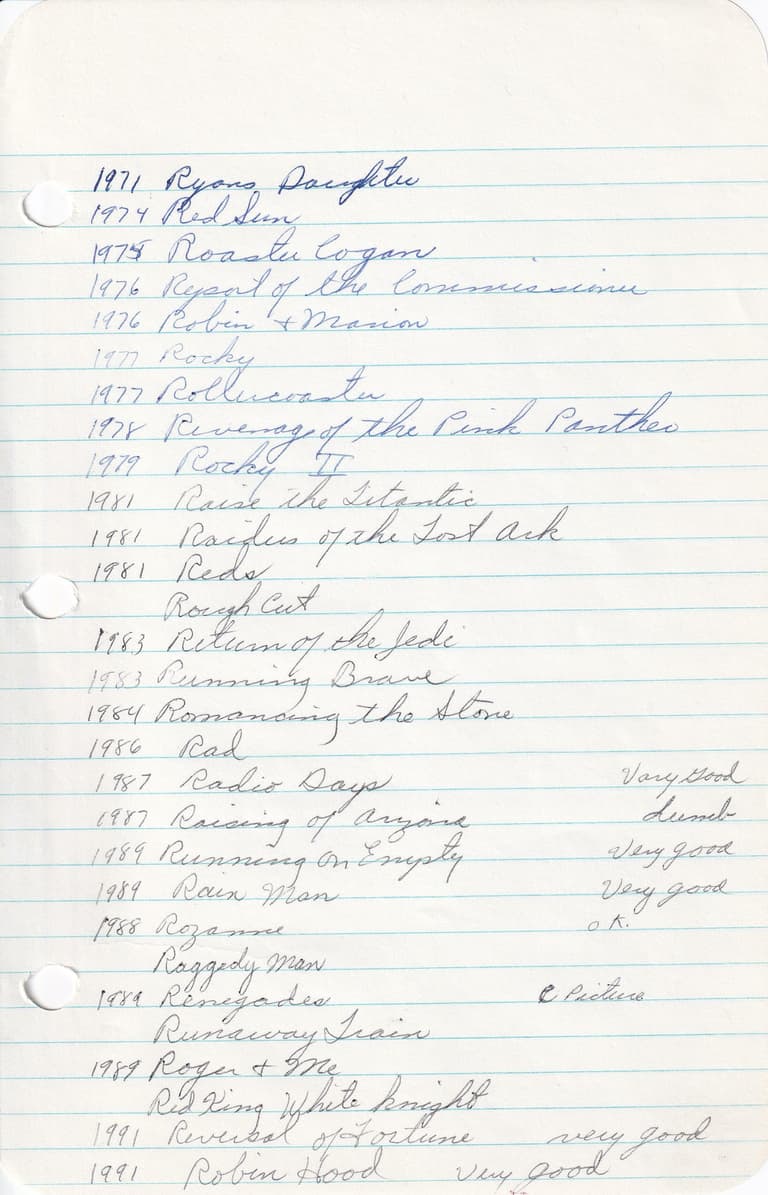 1971 Ryans Daughter
1974 Red Sun
1975 Rooster Cogan
1976 Report of the Commissioner
1976 Robin + Marion
1977 Rocky
1977 Rollercoaster
1978 Revenage of the Pink Panther
1979 Rocky II
1981 Raise the Titantic
1981 Raiders of the Lost Ark
1981 Reds
Rough Cut
1983 Return of the Jedi
1983 Running Brave
1984 Romancing the Stone
1986 Rad
1987 Radio Days Very Good
1987 Raising of Arizona dumb
1989 Running on Empty Very good
1989 Rain Man Very good
1988 Rozanne O.K.
Raggedy Man
1989 Renegades C Picture
Runaway Train
1989 Roger + Me
Red King White Knight
1991 Reversal of Fortune very good
1991 Robin Hood Very good